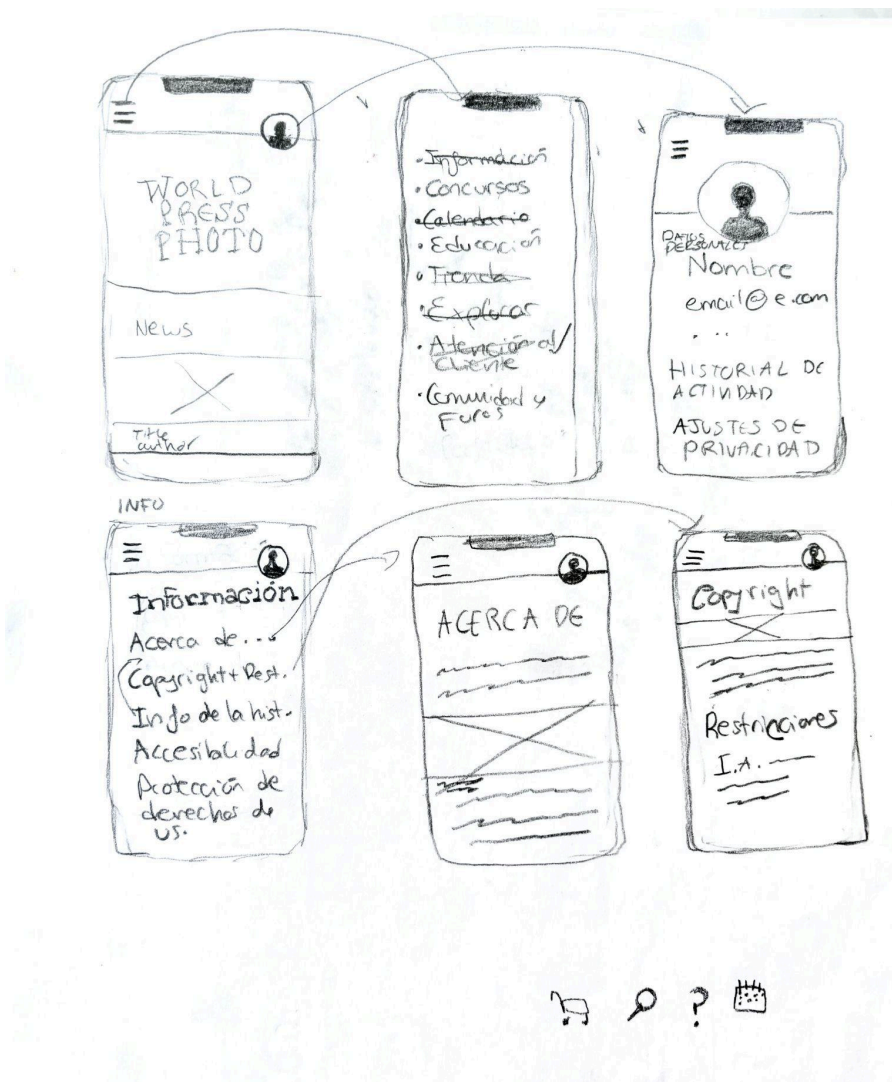 WORLD
PRESS
PHOTO
News
Title
author
• Información
• Concursos
• Calendario
• Educación
• Tienda
• Explorar
• Atención al
Cliente
• Comunidad y
Foros
DATOS
PERSONALES
Nombre
email@e.com
...
HISTORIAL DE
ACTIVIDAD
AJUSTES DE
PRIVACIDAD
INFO
Información
Acerca de...
Copyright + Rest.
Info de la hist.
Accesibilidad
Protección de
derechos de
us.
ACERCA DE
Copyright
Restricciones
I.A.
?